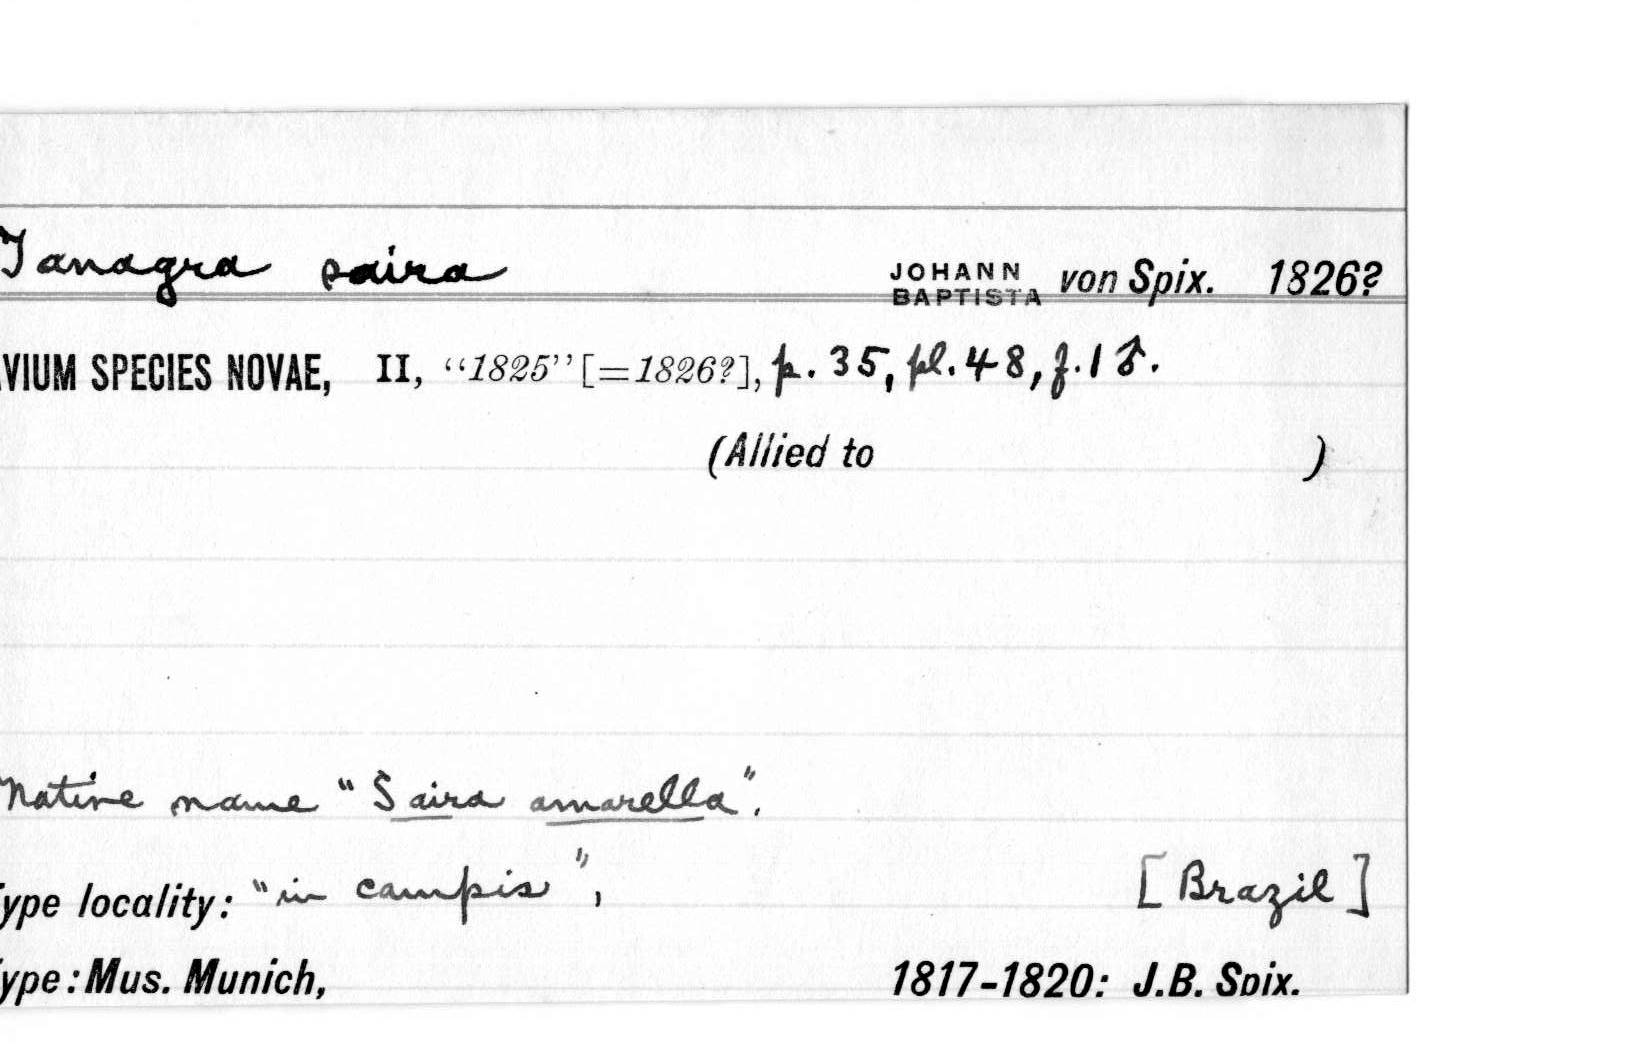 Tanagra saira JOHANN BAPTISTA von Spix. 1826?
AVIUM SPECIES NOVAE, II, “1825” [=1826?], p. 35, pl. 48, f. 1 ♂.
(Allied to )
Native name “Saira amarella”.
Type locality: “in campis”, [Brazil]
Type: Mus. Munich, 1817-1820: J.B. Spix.